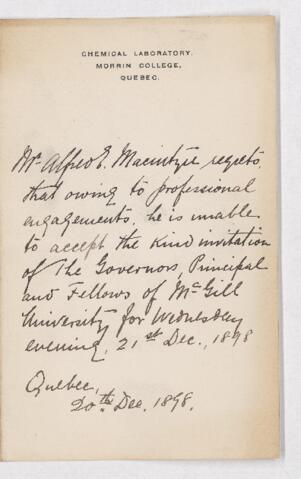 CHEMICAL LABORATORY.
MORRIN COLLEGE,
QUEBEC.
Mr. Alfred E. Macintyre regrets
that owing to professional
engagements, he is unable
to accept the kind invitation
of The Governors, Principal
and Fellows of McGill
University for Wednesday
evening, 21st Dec., 1898
Quebec,
20th Dec. 1898.